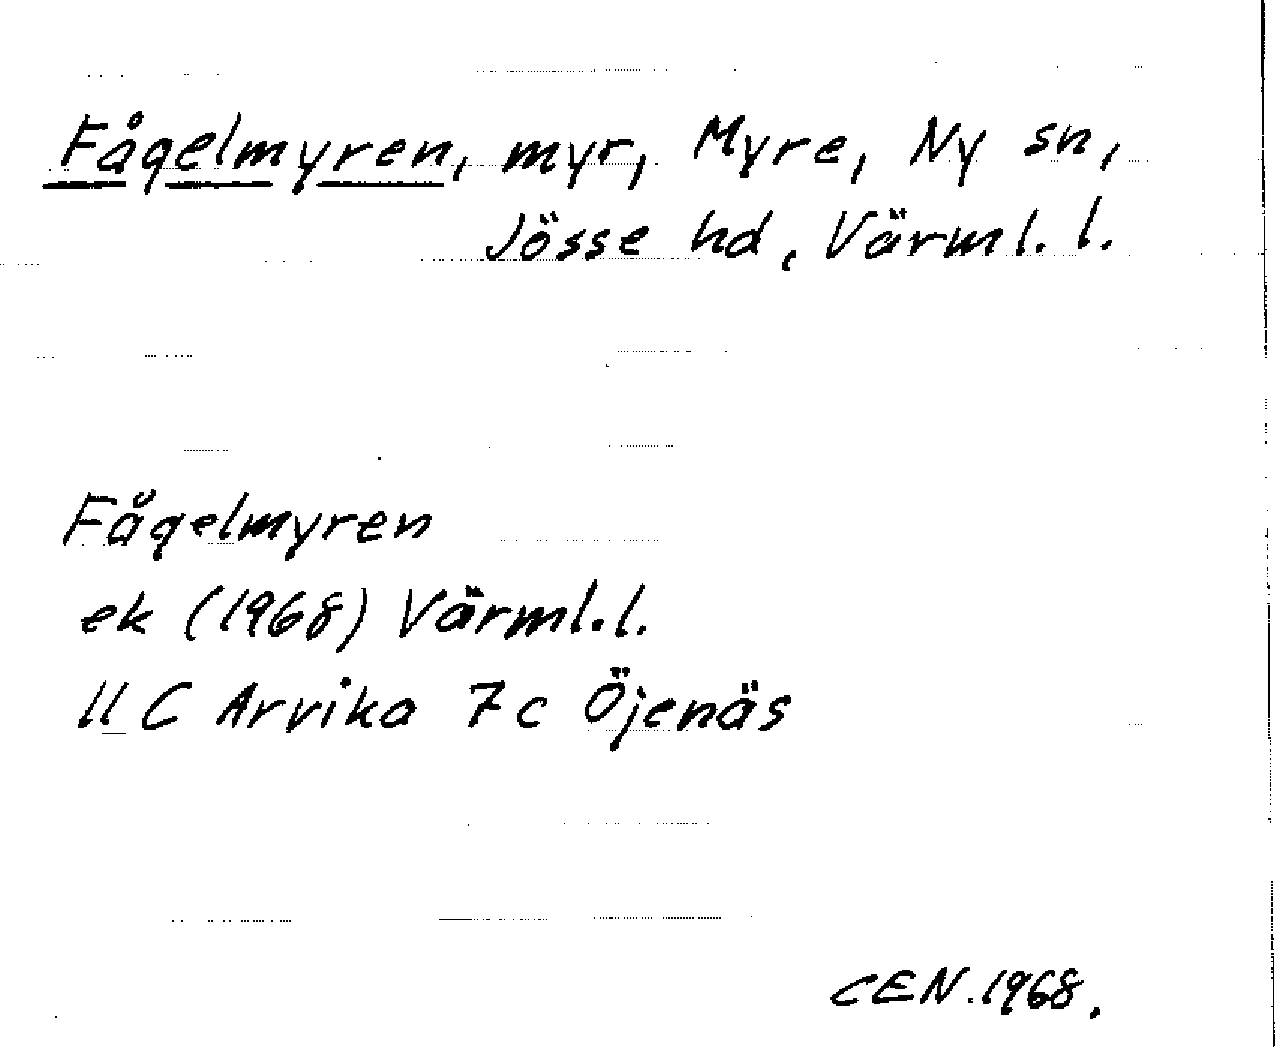 Fågelmyren, myr, Myre, Ny sn,
Jösse hd, Värml. l.
Fågelmyren
ek (1968) Värml. l.
11 C Arvika 7c Öjenäs
CEN. 1968.